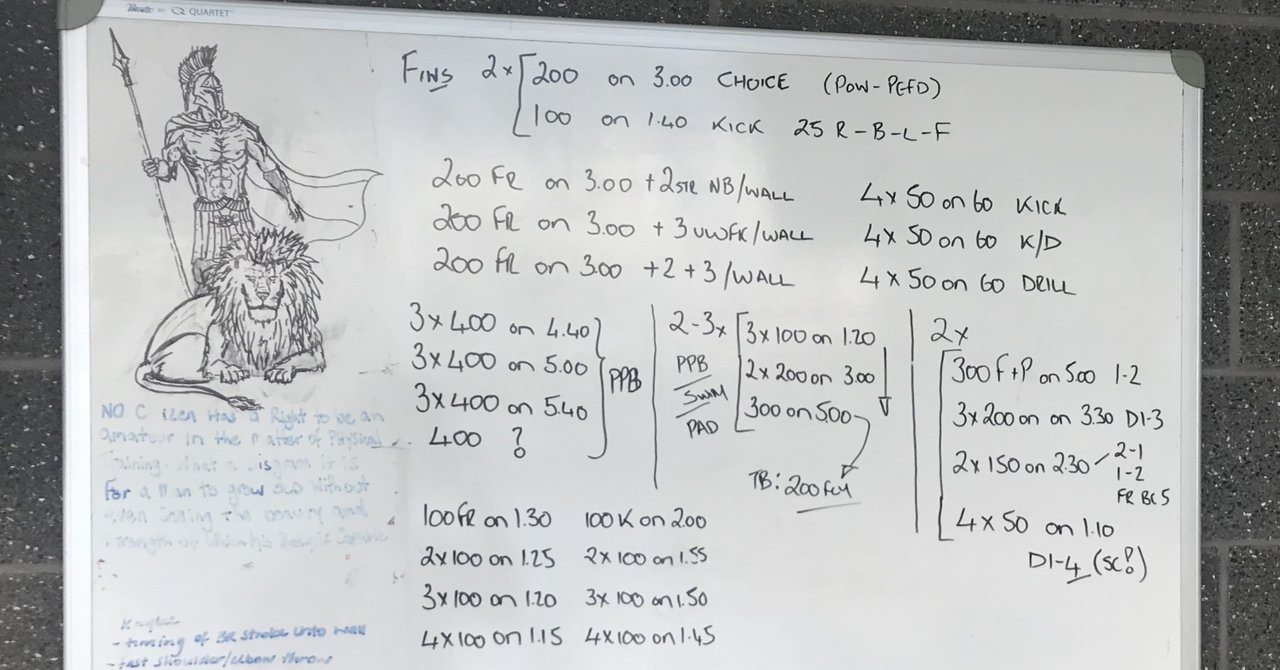 QUARTET
FINS 2x 200 on 3.00 CHOICE (POW-PEFD)
100 on 1.40 KICK 25 R-B-L-F
200 FR on 3.00 +2STR NB/WALL
200 FR on 3.00 + 3 UWFK/WALL
200 FR on 3.00 +2+3/WALL
4x50 on 60 KICK
4x50 on 60 K/D
4x50 on 60 DRILL
3x400 on 4.40
3x400 on 5.00
3x400 on 5.40
400 ?
PPB
2-3x
PPB
SWM
PAD
3x100 on 1.20
2x200 on 3.00
300 on 5.00
TB: 200 FLY
2x
300 F+P on 5.00 1-2
3x200 on on 3.30 D1-3
2x150 on 2.30 2-1
1-2
FR BC5
4x50 on 1.10
D1-4 (SC?)
100 FR on 1.30 100K on 2.00
2x100 on 1.25 2x100 on 1.55
3x100 on 1.20 3x100 on 1.50
4x100 on 1.15 4x100 on 1.45
NO C izen Has a Right to be an
amateur in the matter of Physical
Training. What a Disgrace it is
For a Man to grow OLD Without
even Seeing the beauty and
Strength of Which his Body is Capable
- timing of BR stroke into wall
- fast shoulder/elbow throw